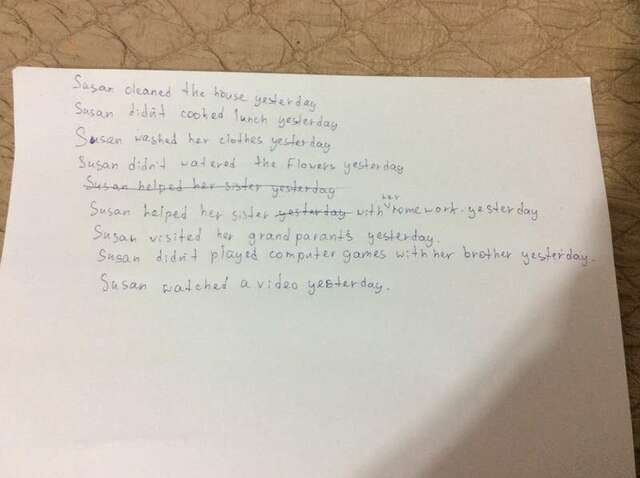 Susan cleaned the house yesterday
Susan didn't cooked lunch yesterday
Susan washed her clothes yesterday
Susan didn't watered the Flowers yesterday
Susan helped her sister yesterday
Susan helped her sister yesterday with her homework. yesterday
Susan visited her grandparants yesterday.
Susan didn't played computer games with her brother yesterday.
Susan watched a video yesterday.